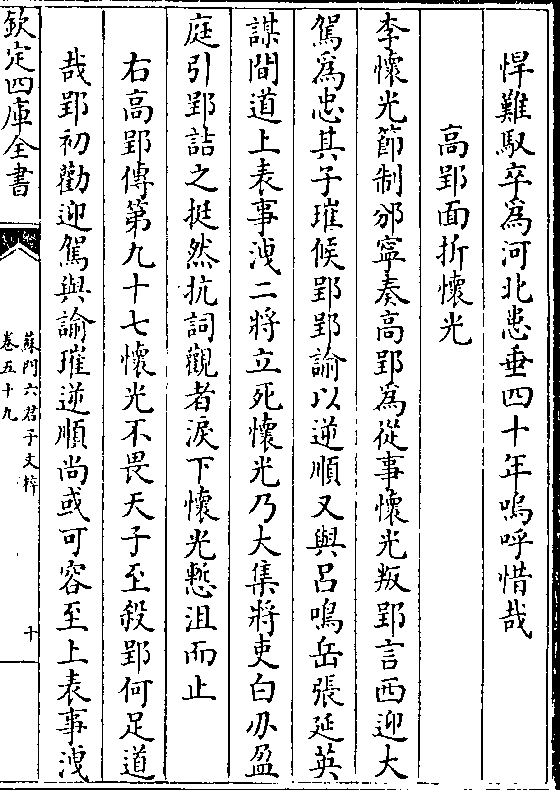 悍難馭卒為河北患垂四十年嗚呼惜哉
高郢面折懷光
李懷光節制邠寧奏高郢為從事懷光叛郢言西迎大
駕為忠其子璀候郢郢諭以逆順又與呂鳴岳張延英
謀間道上表事洩二將立死懷光乃大集將吏白刃盈
庭引郢詰之挺然抗詞觀者淚下懷光慙沮而止
右高郢傳第九十七懷光不畏天子至殺郢何足道
哉郢初勸迎駕與諭璀逆順尚或可容至上表事洩
欽定四庫全書
蘇門六君子文粹
卷五十九
十